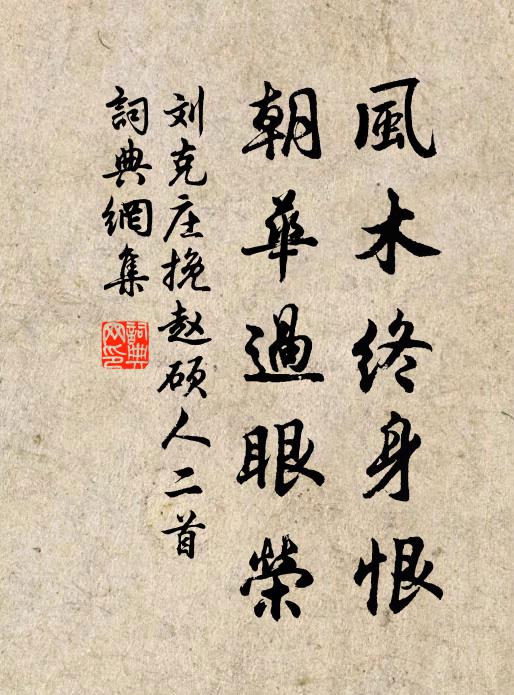 風木終身恨
朝華過眼榮
刘克庄挽赵硕人二首
詞典網集
詞典網印